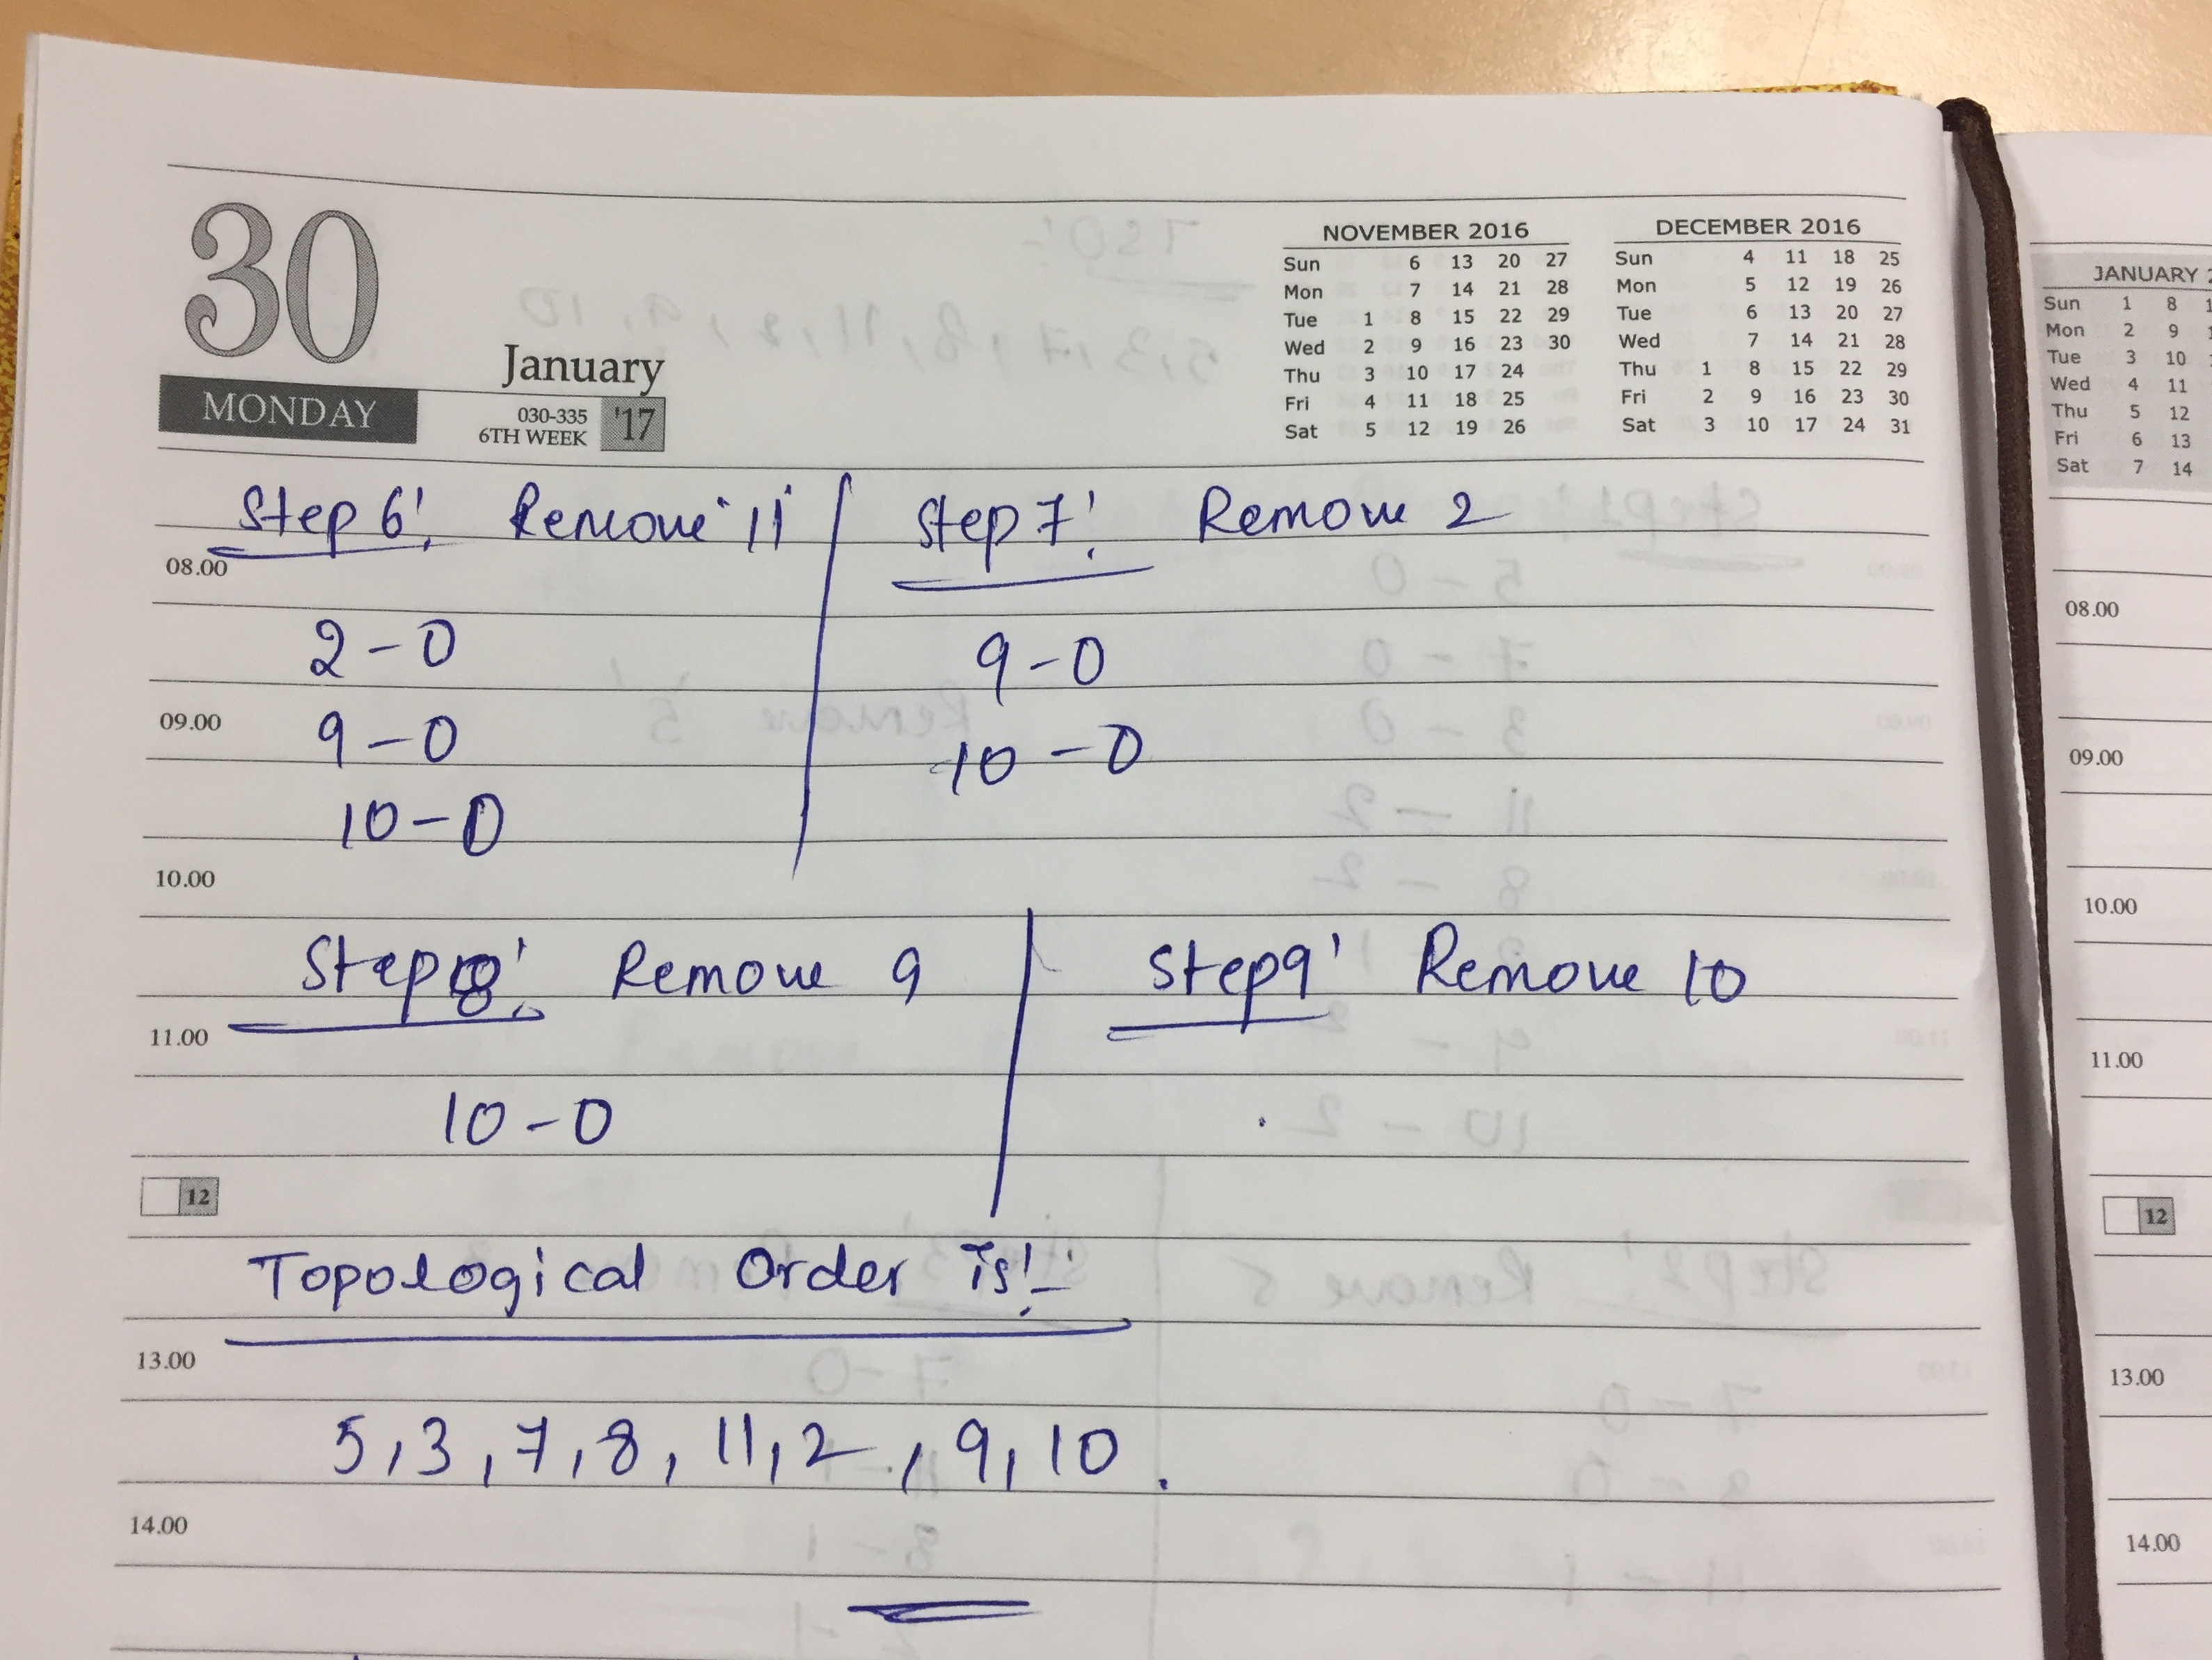 30
January
MONDAY
030-335
6TH WEEK
'17
NOVEMBER 2016
Sun 6 13 20 27
Mon 7 14 21 28
Tue 1 8 15 22 29
Wed 2 9 16 23 30
Thu 3 10 17 24
Fri 4 11 18 25
Sat 5 12 19 26
DECEMBER 2016
Sun 4 11 18 25
Mon 5 12 19 26
Tue 6 13 20 27
Wed 7 14 21 28
Thu 1 8 15 22 29
Fri 2 9 16 23 30
Sat 3 10 17 24 31
Step 6: Remove 11
08.00
2-0
09.00
9-0
10-0
10.00
Step 7: Remove 2
9-0
10-0
Step 8: Remove 9
11.00
10-0
Step 9: Remove 10
12
Topological Order is:-
13.00
5, 3, 7, 8, 11, 2, 9, 10.
14.00
JANUARY
Sun 1 8
Mon 2 9
Tue 3 10
Wed 4 11
Thu 5 12
Fri 6 13
Sat 7 14
08.00
09.00
10.00
11.00
12
13.00
14.00